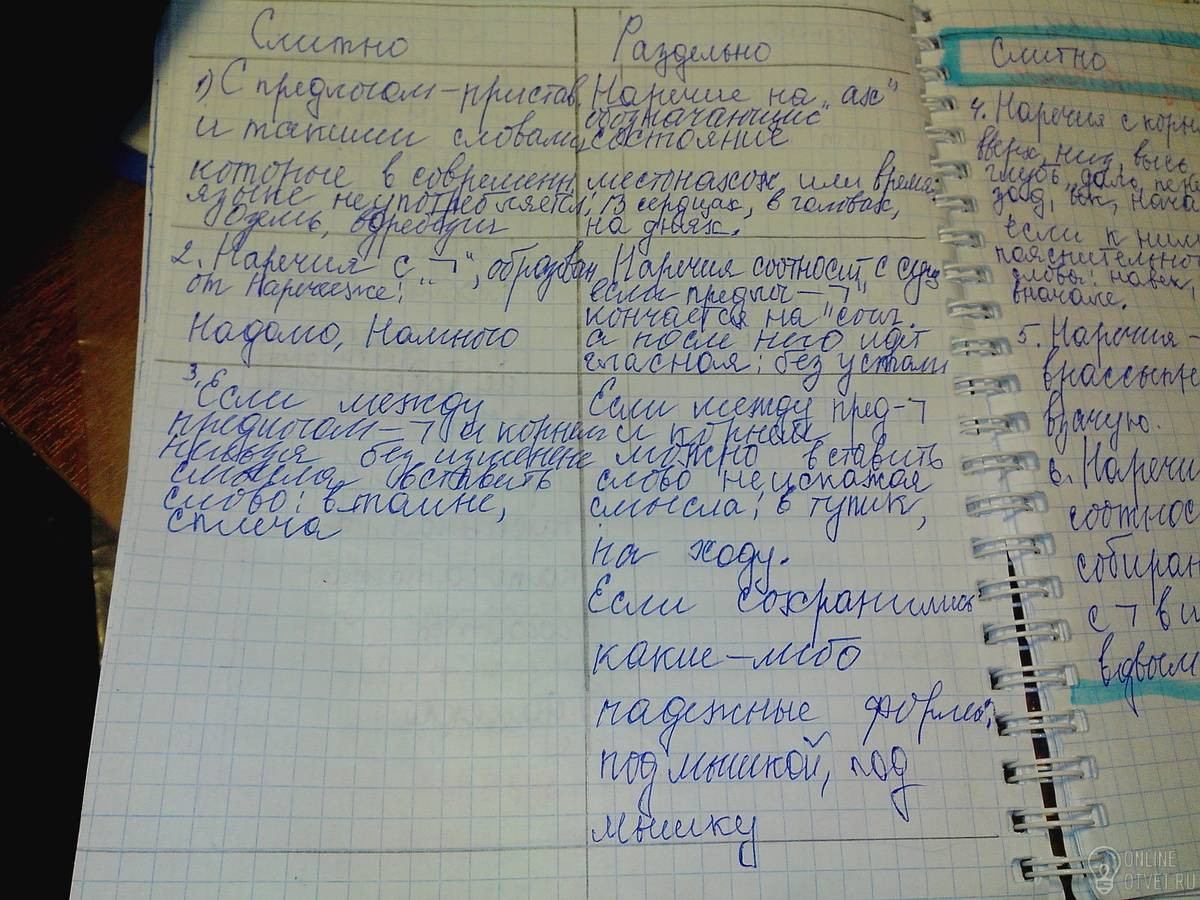 Слитно
1) С предлогом-пристав.
и такими словами,
которые в современн
языке не употребляется;
Оземь, вдребезги
2. Наречия с „¬“, образован
от Наречия:
Надолго, Намного
3. Если между
предлогом-¬ и корнем
нельзя без изменене
смысла вставить
слово: втайне,
сплеча
Раздельно
Наречие на „ах“
обозначающие
состояние
местонахож или время:
В сердцах, в головах,
на днях.
Наречия соотносит с сущ
если предлог-¬
кончается на "согл.
а после него идт
гласная: без устали
Если между пред-¬
и корнем
можно вставить
слово не искажая
смысла; в тупик,
на ходу.
Если сохранились
какие-либо
падежные формы:
под мышкой, под
мышку
Слитно
4. Наречия с корн
вверх, низ, высь
глубь, даль, пе
зад, век, нача
если к ним
пояснительно
слова: навек,
вначале.
5. Наречия -
врассыпн
взачую.
6. Наречи
соотнос
собиран
с ¬ в и
вдвоем
ONLINE
OTVET.RU